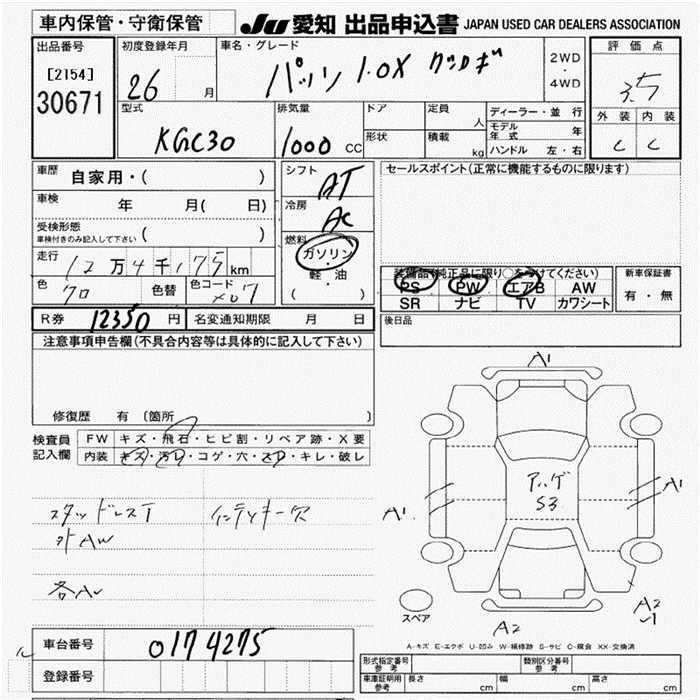 車内保管・守衛保管 JU 愛知 出品申込書 JAPAN USED CAR DEALERS ASSOCIATION
出品番号 [2154] 30671
初度登録年月 26 月
車名・グレード パッソ 1.0X
2WD・4WD
評価点 3.5
外装 C 内装 C
型式 KGC30
排気量 1000 CC
ドア 定員 人
形状 積載 kg
ディーラー・並行
モデル年式 年
ハンドル 左・右
車歴 自家用・( )
車検 年 月( 日)
受検形態 ( )
車検付きのみ記入して下さい
走行 12万4千175km
色 クロ 色替 色コード X07
シフト AT
冷房 AC
燃料 ガソリン・軽・油 ( )
セールスポイント(正常に機能するものに限ります)
装備品(純正品に限り○をつけてください)
PS PW エアB AW
SR ナビ TV カワシート
新車保証書 有・無
R券 12350 円 名変通知期限 月 日
後日品
注意事項申告欄(不具合内容等は具体的に記入して下さい)
修復歴 有 〔箇所 〕
検査員記入欄
FW キズ・飛石・ヒビ割・リペア跡・X要
内装 キズ・汚レ・コゲ・穴・スレ・キレ・破レ
スタッドレスT
外AW
インテリキー欠
A1
A1
A1
アハゲ
S3
スペア
A2
A2
-1
A-キズ E-エクボ U-凹み W-補修跡 S-サビ C-腐食 XX-交換済
車台番号 0174275
登録番号
形式指定番号 参考 類別区分番号 参考
車庫証明用 参考 長さ cm 幅 cm 高さ cm